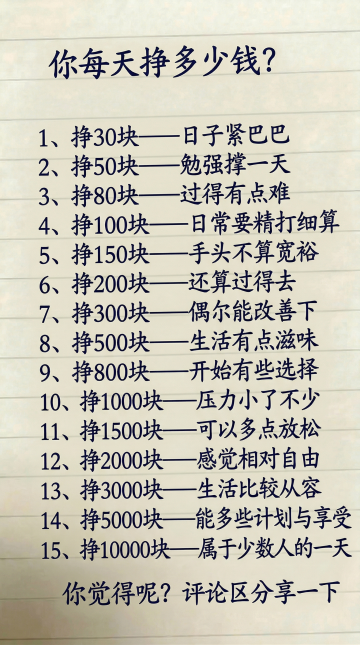 你每天挣多少钱？
1、挣30块——日子紧巴巴
2、挣50块——勉强撑一天
3、挣80块——过得有点难
4、挣100块——日常要精打细算
5、挣150块——手头不算宽裕
6、挣200块——还算过得去
7、挣300块——偶尔能改善下
8、挣500块——生活有点滋味
9、挣800块——开始有些选择
10、挣1000块——压力小了不少
11、挣1500块——可以多点放松
12、挣2000块——感觉相对自由
13、挣3000块——生活比较从容
14、挣5000块——能多些计划与享受
15、挣10000块——属于少数人的一天
你觉得呢？评论区分享一下